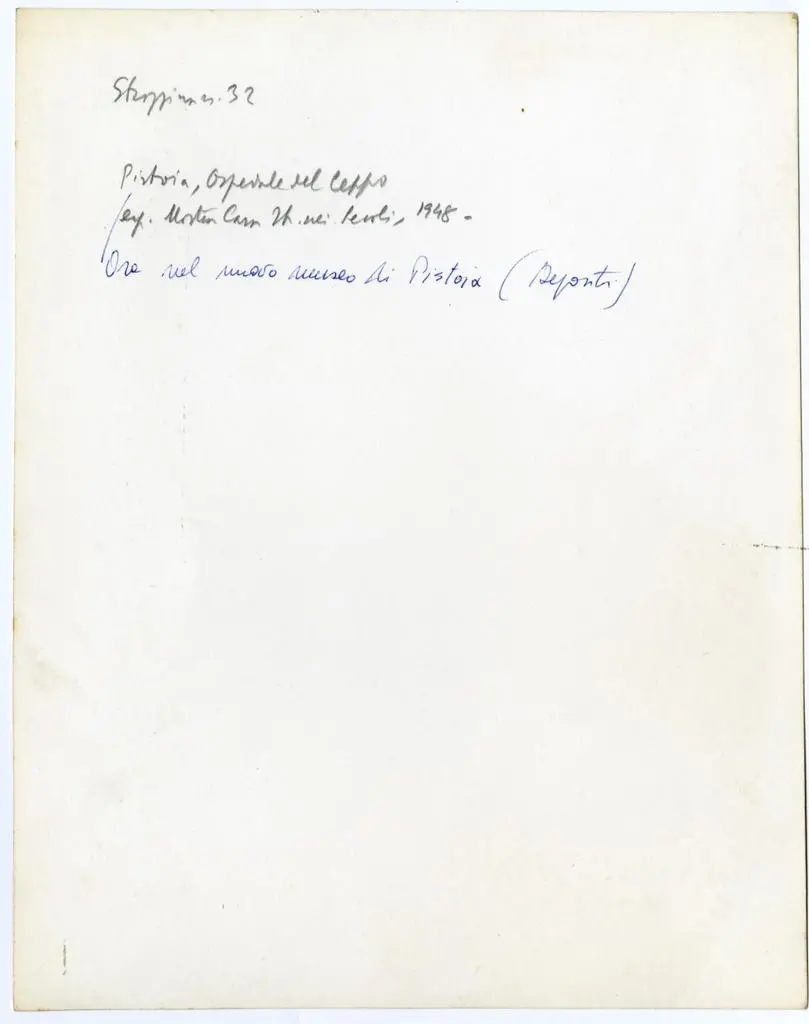 n. 32
Pistoia, Ospedale del Ceppo
esp. Mostra Casa It. nei Secoli, 1948 -
Ora nel nuovo museo di Pistoia (Depositi)